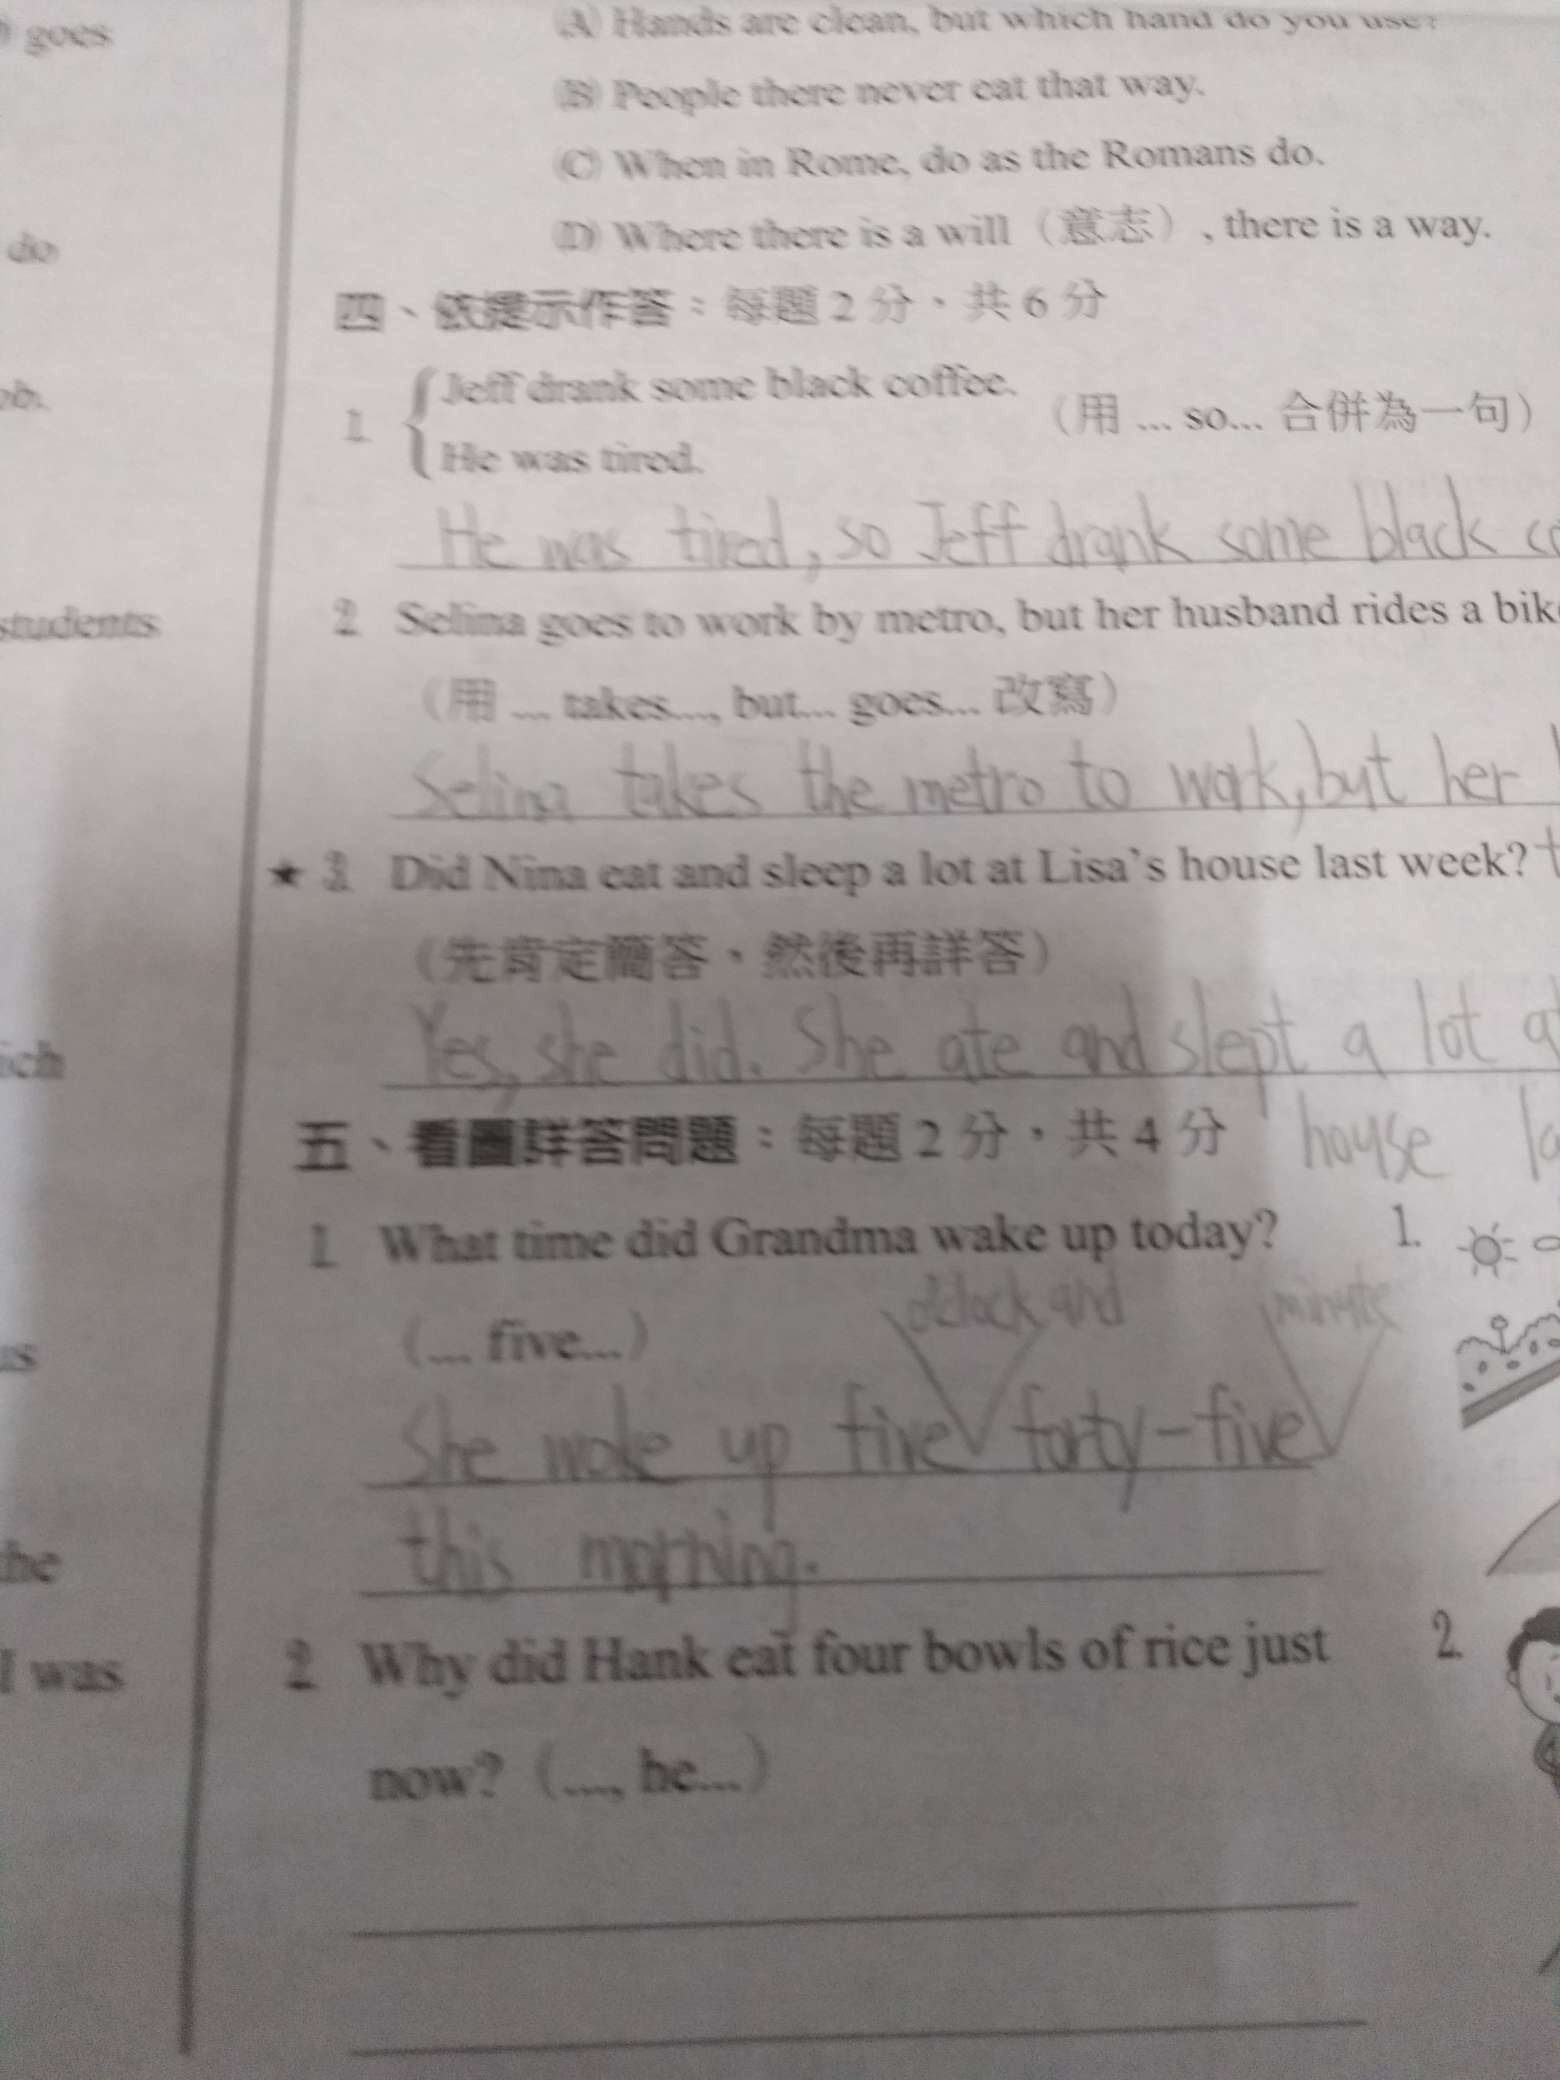 goes
(A) Hands are clean, but which hand do you use?
(B) People there never eat that way.
(C) When in Rome, do as the Romans do.
do
(D) Where there is a will（意志）, there is a way.
四、依提示作答：每題 2 分，共 6 分
ob.
1. Jeff drank some black coffee.
He was tired.
（用 ... so... 合併為一句）
He was tired, so Jeff drank some black co
students
2. Selina goes to work by metro, but her husband rides a bik
（用 ... takes..., but... goes... 改寫）
Selina takes the metro to work, but her
★ 3. Did Nina eat and sleep a lot at Lisa's house last week?
（先肯定簡答，然後再詳答）
Yes, she did. She ate and slept a lot a
ich
五、看圖詳答問題：每題 2 分，共 4 分
house la
1. What time did Grandma wake up today?
1.
o'clock and minute
as
（... five...）
She woke up five forty-five
this morning.
he
2. Why did Hank eat four bowls of rice just
2.
I was
now?（..., he...）